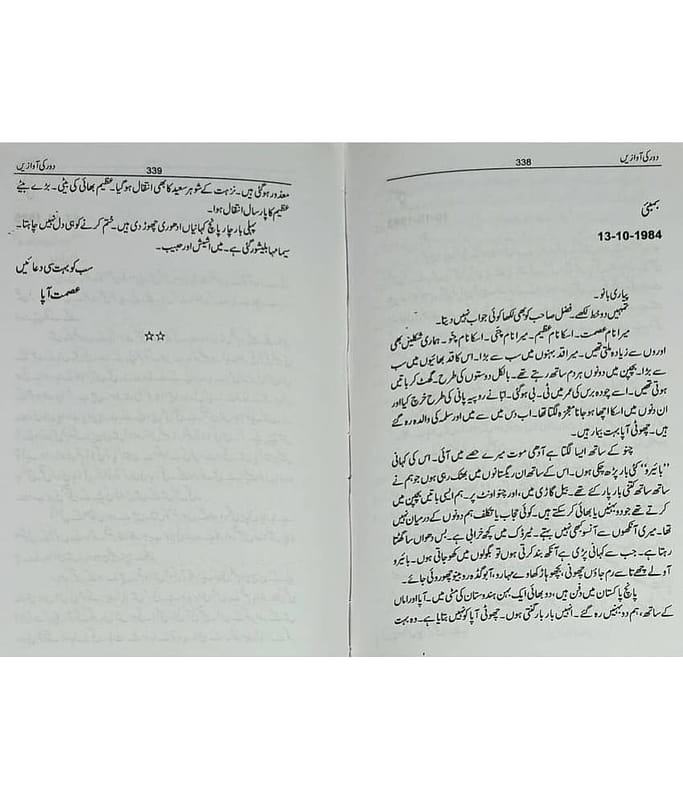 دور کی آوازیں
338
بمبئی
13-10-1984
پیاری بانو۔
تمہیں دو خط لکھے۔ فضل صاحب کو بھی لکھا کوئی جواب نہیں دیتا۔
میرا نام عصمت۔ اسکا نام عظیم۔ میرا نام چنّی۔ اسکا نام چنّو۔ ہماری شکلیں بھی
اوروں سے زیادہ ملتی تھیں۔ میرا قد بہنوں میں سب سے بڑا۔ اس کا قد بھائیوں میں سب
سے بڑا۔ بچپن میں دونوں ہر دم ساتھ رہتے تھے۔ بالکل دوستوں کی طرح۔ گھٹ کر باتیں
ہوتی تھیں۔ اسے چودہ برس کی عمر میں ٹی۔ بی ہو گئی۔ ابا نے روپیہ پانی کی طرح خرچ کیا اور
ان دنوں میں اسکا اچھا ہو جانا معجزہ لگتا تھا۔ اب دس میں سے میں اور سلمہ کی والدہ رہ گئے
ہیں۔ چھوٹی آپا بہت بیمار ہیں۔
چنو کے ساتھ ایسا لگتا ہے آدھی موت میرے حصے میں آئی۔ اس کی کہانی
"بائیرو" کئی بار پڑھ چکی ہوں۔ اس کے ساتھ ان ریگستانوں میں بھٹک رہی ہوں جو ہم نے
ساتھ ساتھ کتنی بار پار کئے تھے۔ بیل گاڑی میں، اور چنو اونٹ پر۔ ہم ایسی باتیں بچپن میں
کرتے تھے جو دو بہنیں یا بھائی کر سکتے ہیں۔ کوئی حجاب یا تکلف ہم دونوں کے درمیان نہیں
تھا۔ میری آنکھوں سے آنسو کبھی نہیں بہتے۔ ٹیرڈک میں کچھ خرابی ہے۔ بس دھواں سا گھٹتا
رہتا ہے۔ جب سے کہانی پڑی ہے آنکھ بند کرتی ہوں تو بگولوں میں کھو جاتی ہوں۔ بائیرو
آولے چھتے تا سے رم جاؤں چھوٹی، بچھو باڑ کھاوے مہارو، آبوگڈہ رو بیٹو چھورو ئی جائے۔
پانچ پاکستان میں دفن ہیں، دو بھائی ایک بہن ہندوستان کی مٹی میں۔ آپا اور اماں
کے ساتھ، ہم دو بہنیں رہ گئے۔ انہیں بار بار گنتی ہوں۔ چھوٹی آپا کو نہیں بتایا ہے۔ وہ بہت
دور کی آوازیں
339
معذور ہو گئی ہیں۔ نزہت کے شوہر سعید کا بھی انتقال ہو گیا۔ عظیم بھائی کی بیٹی۔ بڑے بیٹے
عظیم کا پار سال انتقال ہوا۔
پہلی بار چار پانچ کہانیاں ادھوری چھوڑ دی ہیں۔ ختم کرنے کو ہی دل نہیں چاہتا۔
سیما مہابلیشور گئی ہے۔ میں اشیش اور حبیب۔
سب کو بہت سی دعائیں
عصمت آپا
☆☆